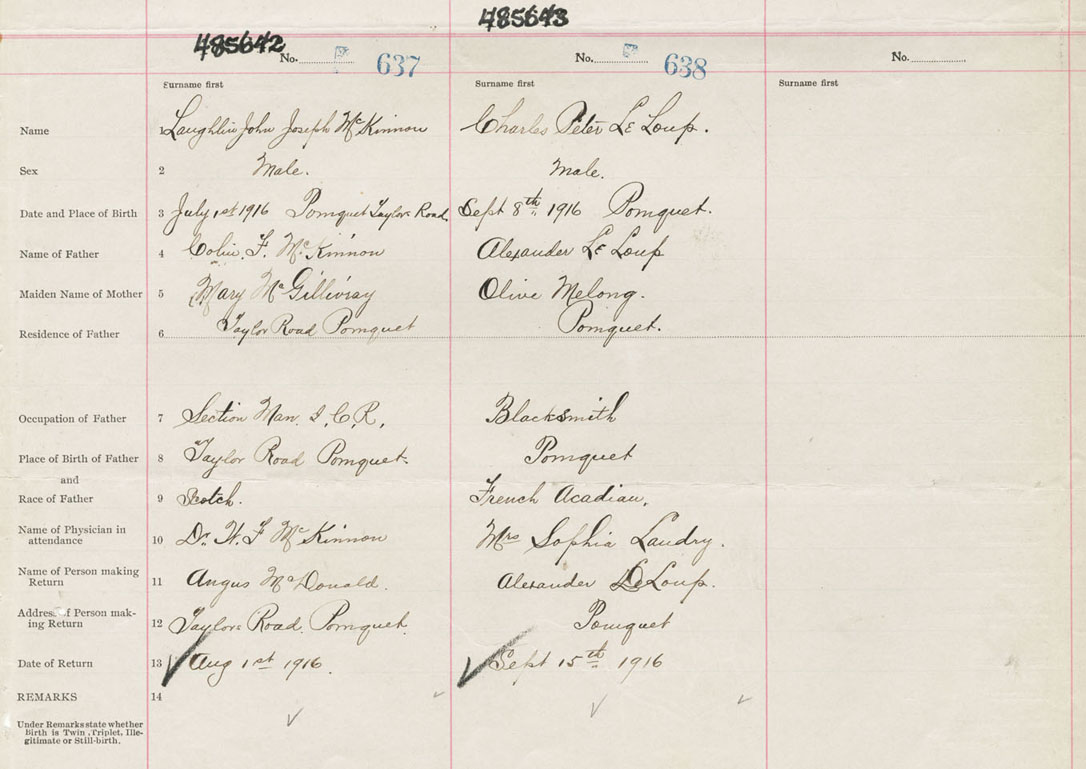 485642
485643
No. 637
No. 638
No.
Surname first
Surname first
Surname first
Name 1 Laughlin John Joseph McKinnon Charles Peter Le Loup.
Sex 2 Male. Male.
Date and Place of Birth 3 July 1st 1916 Pomquet Taylors Road Sept 8th 1916 Pomquet.
Name of Father 4 Colin. F. McKinnon Alexander Le Loup
Maiden Name of Mother 5 Mary McGillivray Olive Melong.
Residence of Father 6 Taylor Road Pomquet Pomquet.
Occupation of Father 7 Section Man. I.C.R. Blacksmith
Place of Birth of Father 8 Taylor Road Pomquet. Pomquet
and
Race of Father 9 Scotch. French Acadian.
Name of Physician in
attendance 10 Dr. W. F McKinnon Mrs Sophia Landry.
Name of Person making
Return 11 Angus McDonald. Alexander LeLoup.
Address of Person mak-
ing Return 12 Taylors Road. Pomquet. Pomquet
Date of Return 13 Aug 1st 1916. Sept 15th 1916
REMARKS 14
Under Remarks state whether
Birth is Twin, Triplet, Ille-
gitimate or Still-birth.